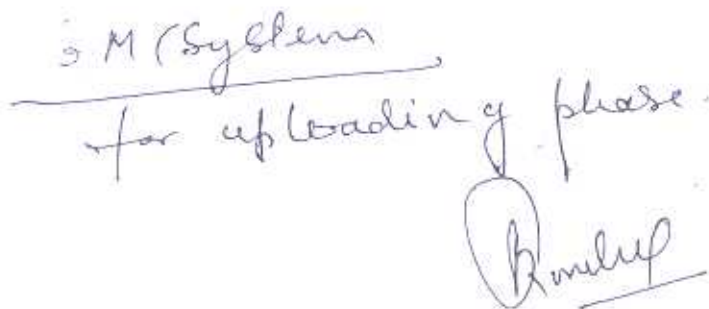 M (System
for uploading phase.